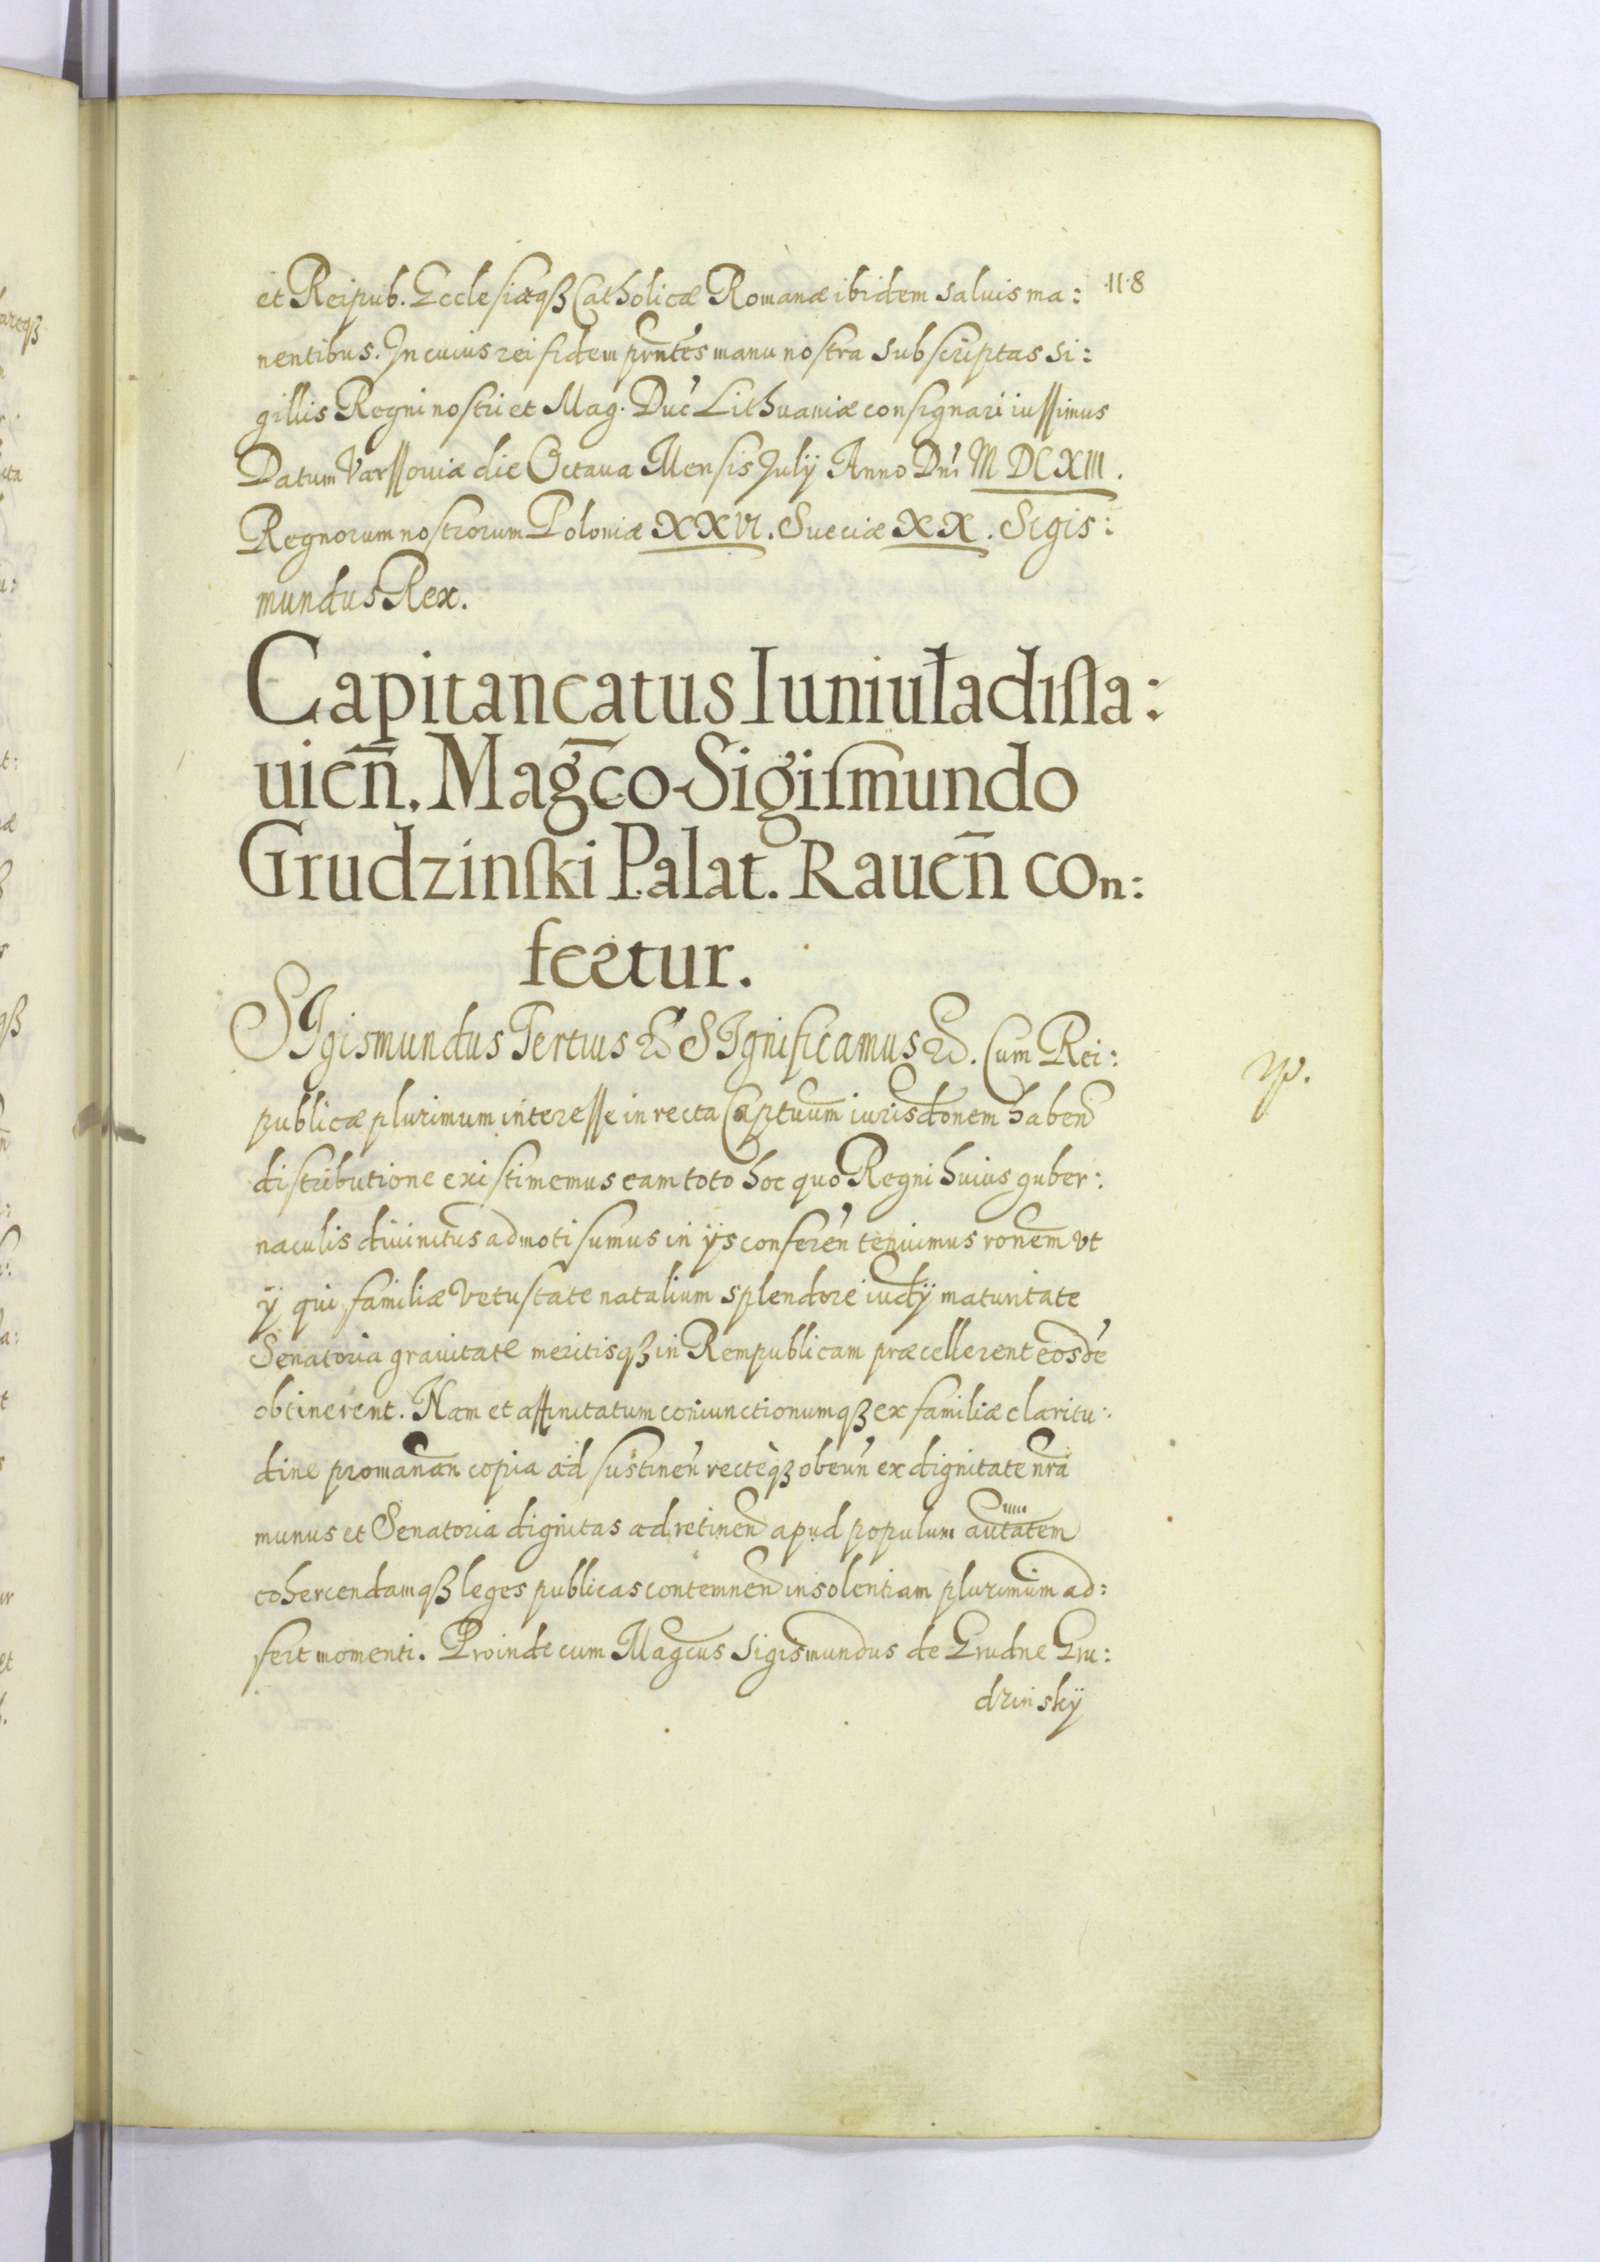 et Reipub. Ecclesiæqꝫ Catholicæ Romanæ ibidem salvis ma: ·118
nentibus. In cuius rei fidem pr̄ntes manu nostra subscriptas si:
gillis Regni nostri et Mag. Duc̄ Lithuaniæ consignari iussimus
Datum Varssoviæ die Octava Mensis Julÿ Anno Dn̄i MDCXIII.
Regnorum nostrorum Poloniæ XXVI. Sueciæ XX. Sigis:
mundus Rex.
Capitaneatus Iuniuładisla:
uien̄. Mag̅co Sigismundo
Grudzinski Palat. Rauen̄ con:
fertur.
SIgismundus Tertius &c SIgnificamus &c. Cum Rei:
publicæ plurimum interesse in recta Captuum̄ iurisd̄onem haben̄
distributione existimemus eam toto hoc quo Regni huius guber:
naculis divinitus admoti sumus in ÿs conferen̄ tenuimus ron̄em vt
ÿ qui familiæ vetustate natalium splendore iud̄ÿ maturitate
Senatoria gravitate meritisqꝫ in Rempublicam præcellerent eosde̅
obtinerent. Nam et affinitatum coniunctionumqꝫ ex familiæ claritu:
dine promanan̄ copia ad sustinen̄ rectèqꝫ obeun̄ ex dignitate nr̄a
munus et Senatoria dignitas ad retinen̄ apud populum aut̄atem
cohercendamqꝫ leges publicas contemnen̄ insolentiam plurimum ad:
fert momenti. Proinde cum Mag̅cus Sigismundus de Grudne Gru:
dzinskÿ